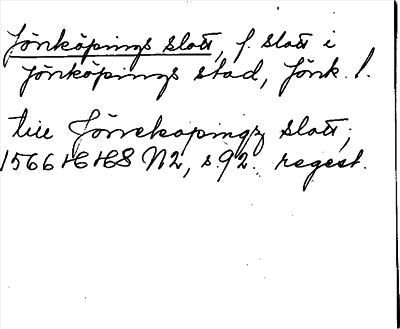 Jönköpings slott, f. slott i
Jönköpings stad, Jönk. l.
till Jönekopingz slott,
1566 HSH N2, s. 92. regest.